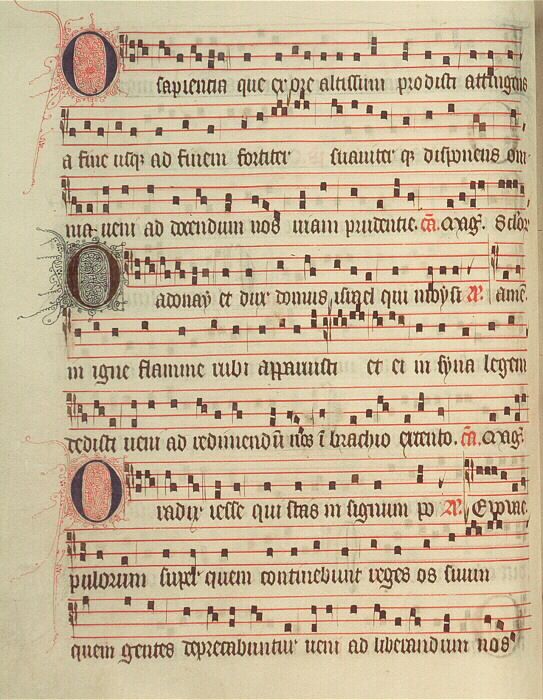 O sapientia que ex ore altissimi prodisti attingens
a fine usq; ad finem fortiter suaviter q; disponens om
nia veni ad docendum nos viam prudentie. cā. Mag̃. Sclor
O adonay et dux domus israel qui moysi R amē.
in igne flamme rubi apparuisti et ei in syna legem
dedisti veni ad redimendū nos ī brachio extento. cā. Mag̃.
O radix iesse qui stas in signum po R Eovae
pulorum super quem continebunt reges os suum
quem gentes deprecabuntur veni ad liberandum nos